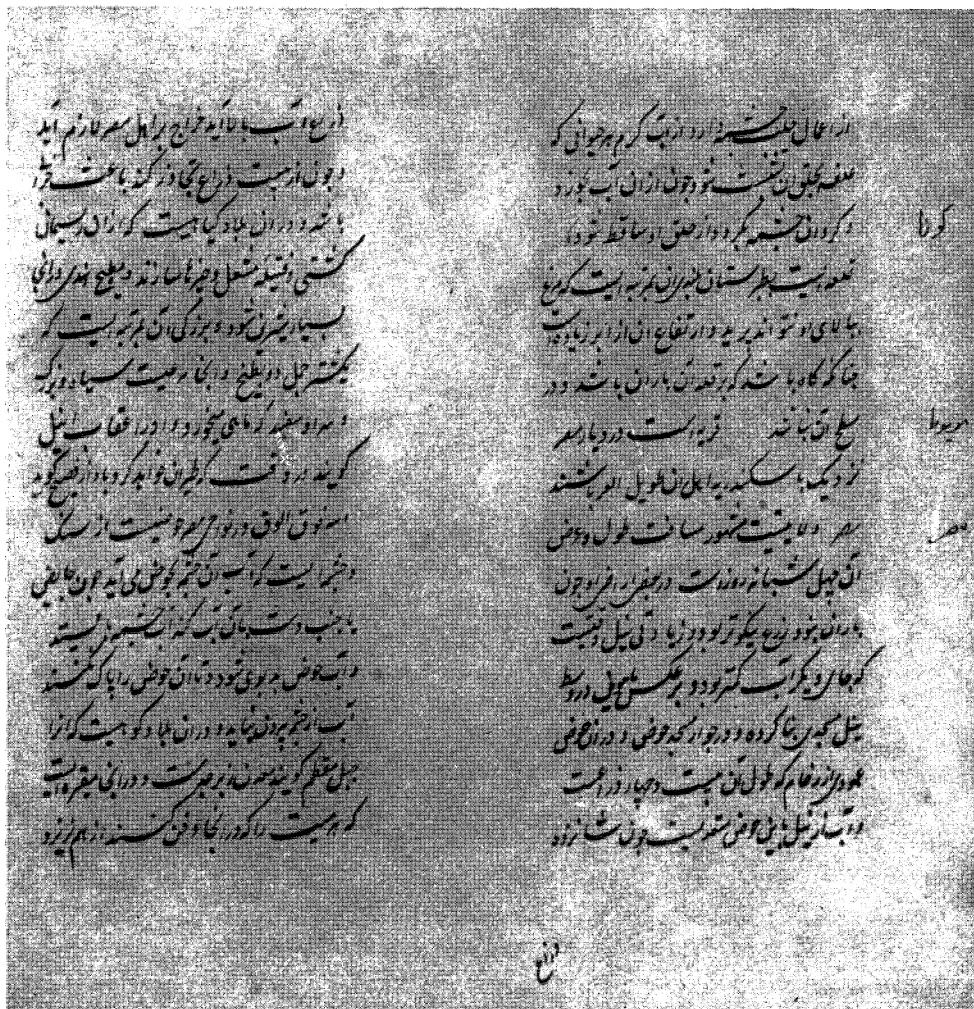 از اعمال چشمه دارد از آب گرم هر حیوانی که
علف بحلق آن بود چون از آن آب بخورد
و کرد آن چشمه بگردد از حلق او ساقط شود
کوردا
قلعه ایست بطبرستان بمرتبه ایست که مرغ
ببالای او نتواند پرید و ارتفاع آن از ابر زیاده
چنانکه گاه باشد که بر قلعه آن باران باشد و در
سطح آن نباشد قریه است در دیار مصر
مریوط
نزدیک باسکندریه اهل آن طویل العمر باشند
مصر
مصر ولایتیست مشهور مسافت طول و عرض
آن چهل شبانه روز است در جفر و چون
باران نبود زرع نیکوتر بود و زیادتی نیل وقتیست
که جای دیگر آب کمتر بود و برعکس در وسط
نیل مسجدی بنا کرده و در جوار مسجد حوضی و در آن حوضی
عمودی از رخام که طول آن بیست و چهار ذراعست
و آب از نیل باین حوض چون شانزده
ذراع
ذراع آب بالا آید خراج بر اهل مصر لازم آید
و چون از بیست ذراع تجاوز کند باعث
باشد و در آن بلاد گیاهیست که از آن ریسمان
کشتی و فتیله مشعل و چیزها سازند و بطیخ هندی در آنجا
بسیار شیرین شود و بزرگی آن بمرتبه ایست که
یکشتر حمل دو بطیخ و آنجا مرغیست سیاه و بزرگ
و سر او سفید که ماهی میخورد و او را عقاب النیل
گویند هر وقت که طیران خواهد کرد باواز فصیح گوید
الله فوق الفوق در نواحی مصر حوضیست از سنگ
و چشمه ایست که آب آن چشمه بحوض می آید چون حایضی
یا جنب دست بآن آب کند آب چشمه بایستد
و آب حوض بدبوی شود و تا آن حوض را پاک نکنند
آب از چشمه بیرون نیاید و در آن بلاد کوهیست که آنرا
جبل مقطم گویند معدن زبرجد است و در آنجا مقبره ایست
که هر میت را که در آنجا دفن کنند از هم نریزد